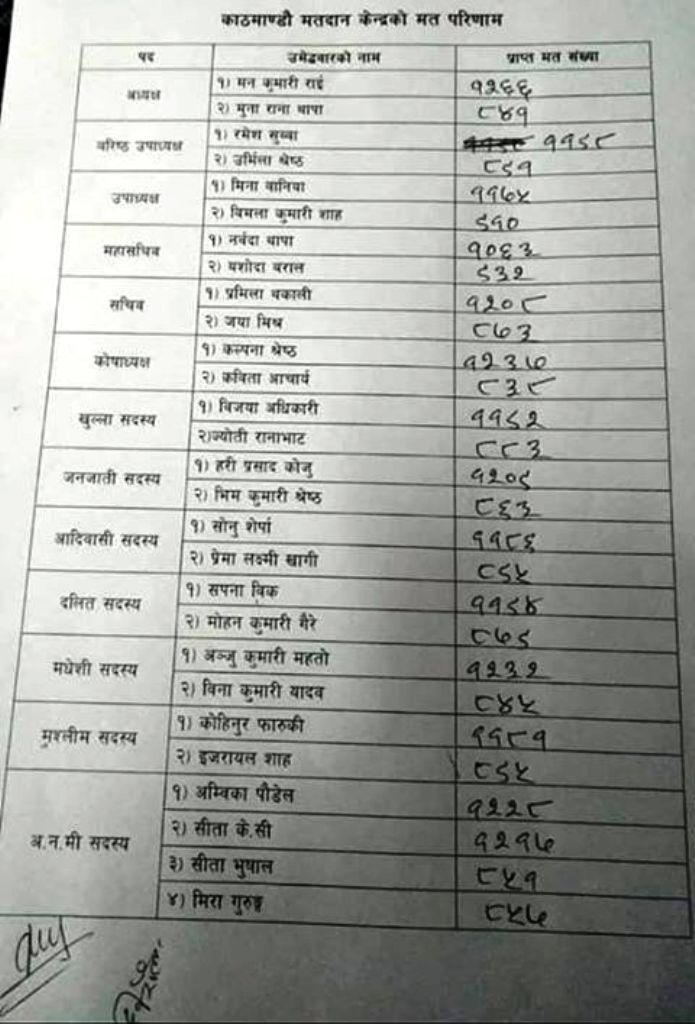 काठमाण्डौ मतदान केन्द्रको मत परिणाम
पद उमेद्वारको नाम प्राप्त मत संख्या
अध्यक्ष १) मन कुमारी राई १२६६
२) मुना राना थापा ८४१
वरिष्ठ उपाध्यक्ष १) रमेश सुब्बा ११९८
२) उर्मिला श्रेष्ठ ८९१
उपाध्यक्ष १) मिना वानिया ११७५
२) विमला कुमारी शाह ९१०
महासचिव १) नर्वदा थापा १०६३
२) यशोदा बराल ९३२
सचिव १) प्रमिला थकाली १२०८
२) जया मिश्र ८७३
कोषाध्यक्ष १) कल्पना श्रेष्ठ १२३७
२) कविता आचार्य ८३८
खुल्ला सदस्य १) विजया अधिकारी ११९२
२)ज्योती रानाभाट ८८३
जनजाती सदस्य १) हरी प्रसाद कोजु १२०९
२) भिम कुमारी श्रेष्ठ ८६३
आदिवासी सदस्य १) सोनु शेर्पा ११८६
२) प्रेमा लक्ष्मी खागी ८९५
दलित सदस्य १) सपना विक ११९४
२) मोहन कुमारी गैरे ८७९
मधेशी सदस्य १) अञ्जु कुमारी महतो १२३२
२) विना कुमारी यादव ८४५
मुश्लीम सदस्य १) कोहिनुर फारुकी ११८१
२) इजरायल शाह ८९५
अ.न.मी सदस्य १) अम्विका पौडेल १२२८
२) सीता के.सी १२१७
३) सीता भुषाल ८५१
४) मिरा गुरुङ्ग ८५७